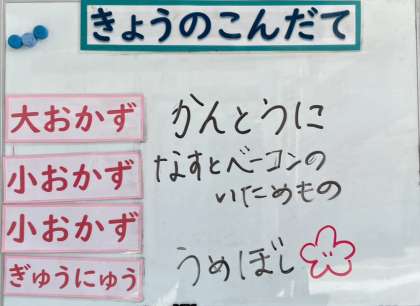 きょうのこんだて
大おかず かんとうに
小おかず なすとベーコンの
いためもの
小おかず
うめぼし
ぎゅうにゅう